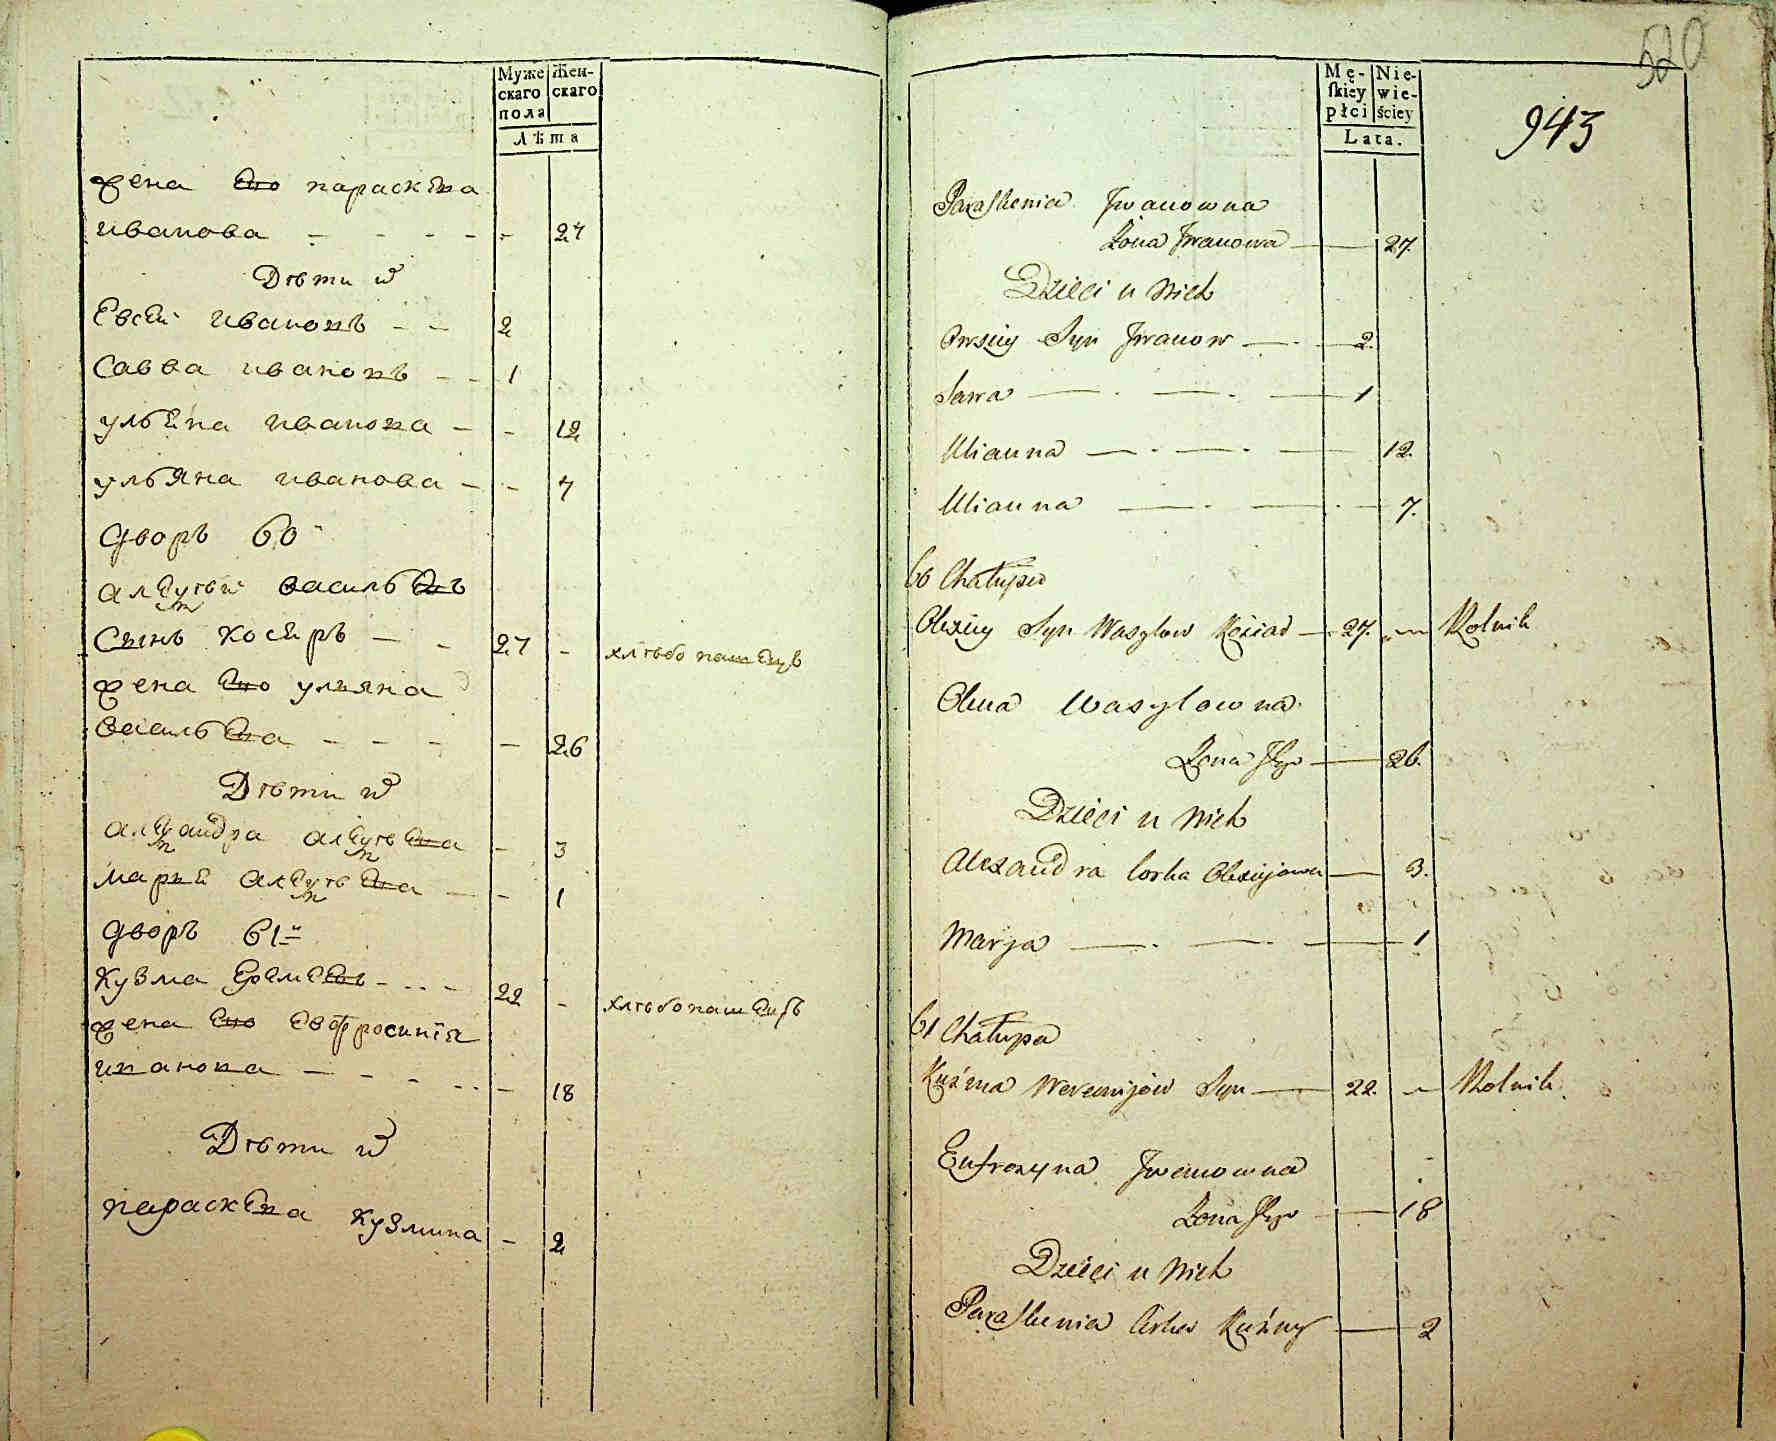 Муже
скаго
пола
Жен-
скаго
Лѣта
жена Его параскева
иванова - - - - - 27
Дѣти и҃
Евсей ивановъ - - 2
Савва ивановъ - - 1
ульяна иванова - - 12
ульяна иванова - - 7
дворъ 60
алексѣй васильевъ
Сынъ - - 27 -
хлѣбопашецъ
жена Его ульяна
васильева - - - - 26
Дѣти
александра алексѣева - 3
марья алексѣева - - 1
дворъ 61й
Кузма - . . - 22 -
хлѣбопашецъ
жена Его Евфросинія
иванова - - - . . - 18
Дѣти
параскева Кузмина - 2
520
943
Mę-
ſkiey
płci
Nie-
wie-
ściey
Lata.
Paraskenia Jwanowna
Żona Jwanowa 27.
Dzieci u Nich
Owsiey Syn Jwanow 2.
Sawa 1
Ulianna 12.
Ulianna 7.
60 Chałupa
Olexiey Syn Wasylow 27. Rolnik
Wasylowna
Żona Jego 26.
Dzieci u Nich
Alexandra Corka Olexiejowa 3.
Marya 1
61 Chałupa
Kuźma Weremijow Syn 22. Rolnik.
Eufrozyna Jwanowna
Żona Jego 18
Dzieci u Nich
Paraskenia Corka Kuźmy 2